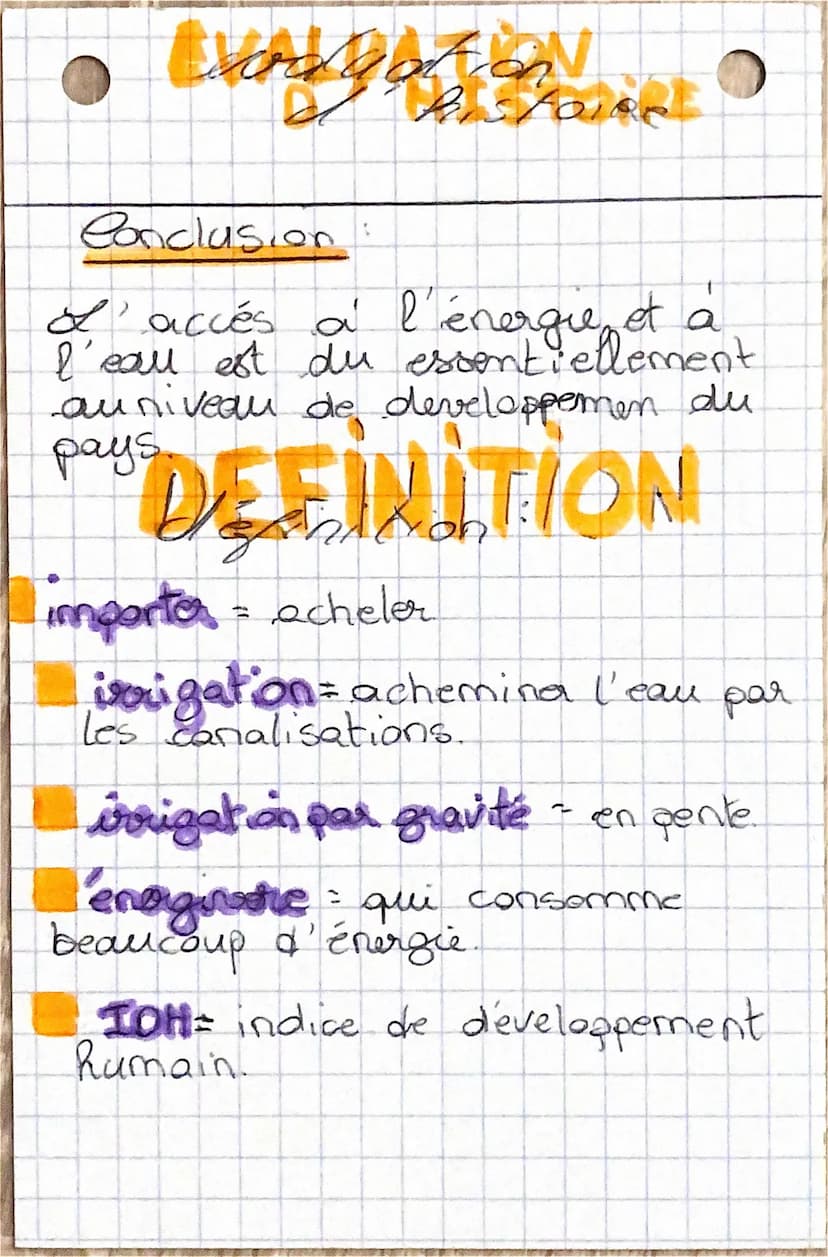 EVALUATION
évaluation
D'HISTOIRE
d'histoire
Conclusion :
L'accés à l'énergie et à
l'eau est du essentiellement
au niveau de developpemen du
pays.
DEFINITION
Définition :
importer = acheler
irrigation = acheminer l'eau par
les canalisations.
irrigation par gravité = en pente.
énergivore = qui consomme
beaucoup d'énergie.
IDH = indice de développement
humain.